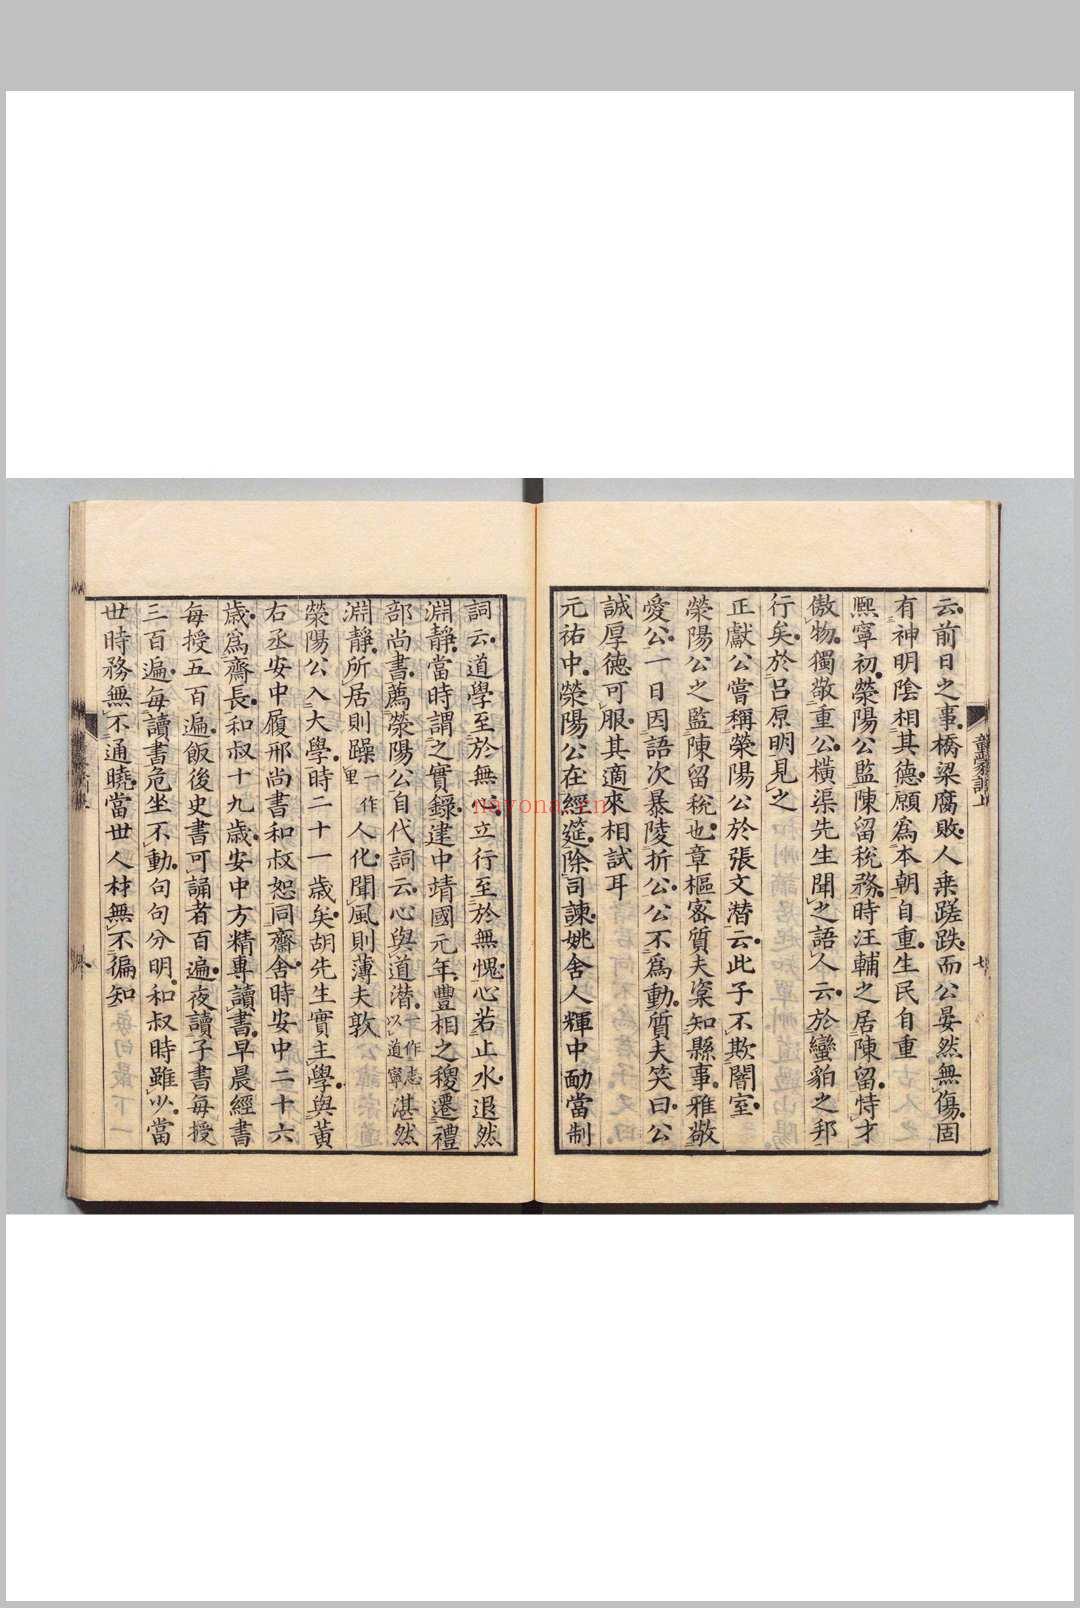 云前日之事橋梁腐敗人乗蹉跌而公晏然無傷固
有神明陰相其德願爲本朝自重生民自重
熈寧初滎陽公監陳留稅務時汪輔之居陳留恃才
傲物獨敬重公橫渠先生聞之語人云於蠻貊之邦
行矣於呂原明見之
正獻公嘗稱滎陽公於張文潛云此子不欺闇室
滎陽公之監陳留稅也章樞密質夫楶知縣事雅敬
愛公一日因語次暴陵折公公不爲動質夫笑曰公
誠厚德可服其適來相試耳
元祐中滎陽公在經筵除司諫姚舍人輝中勔當制
童蒙訓上
七
詞云道學至於無心立行至於無愧心若止水退然
淵靜當時謂之實錄建中靖國元年豐相之稷遷禮
部尚書薦滎陽公自代詞云心與道潛作志以道寧湛然
淵靜所居則躁一作里人化聞風則薄夫敦
滎陽公入大學時二十一歲矣胡先生實主學與黃
右丞安中履邢尚書和叔恕同齋舍時安中二十六
歲爲齋長和叔十九歲安中方精專讀書早晨經書
每授五百遍飯後史書可誦者百遍夜讀子書每授
三百遍每讀書危坐不動句句分明和叔時雖少當
世時務無不通曉當世人材無不徧知
navona.cn